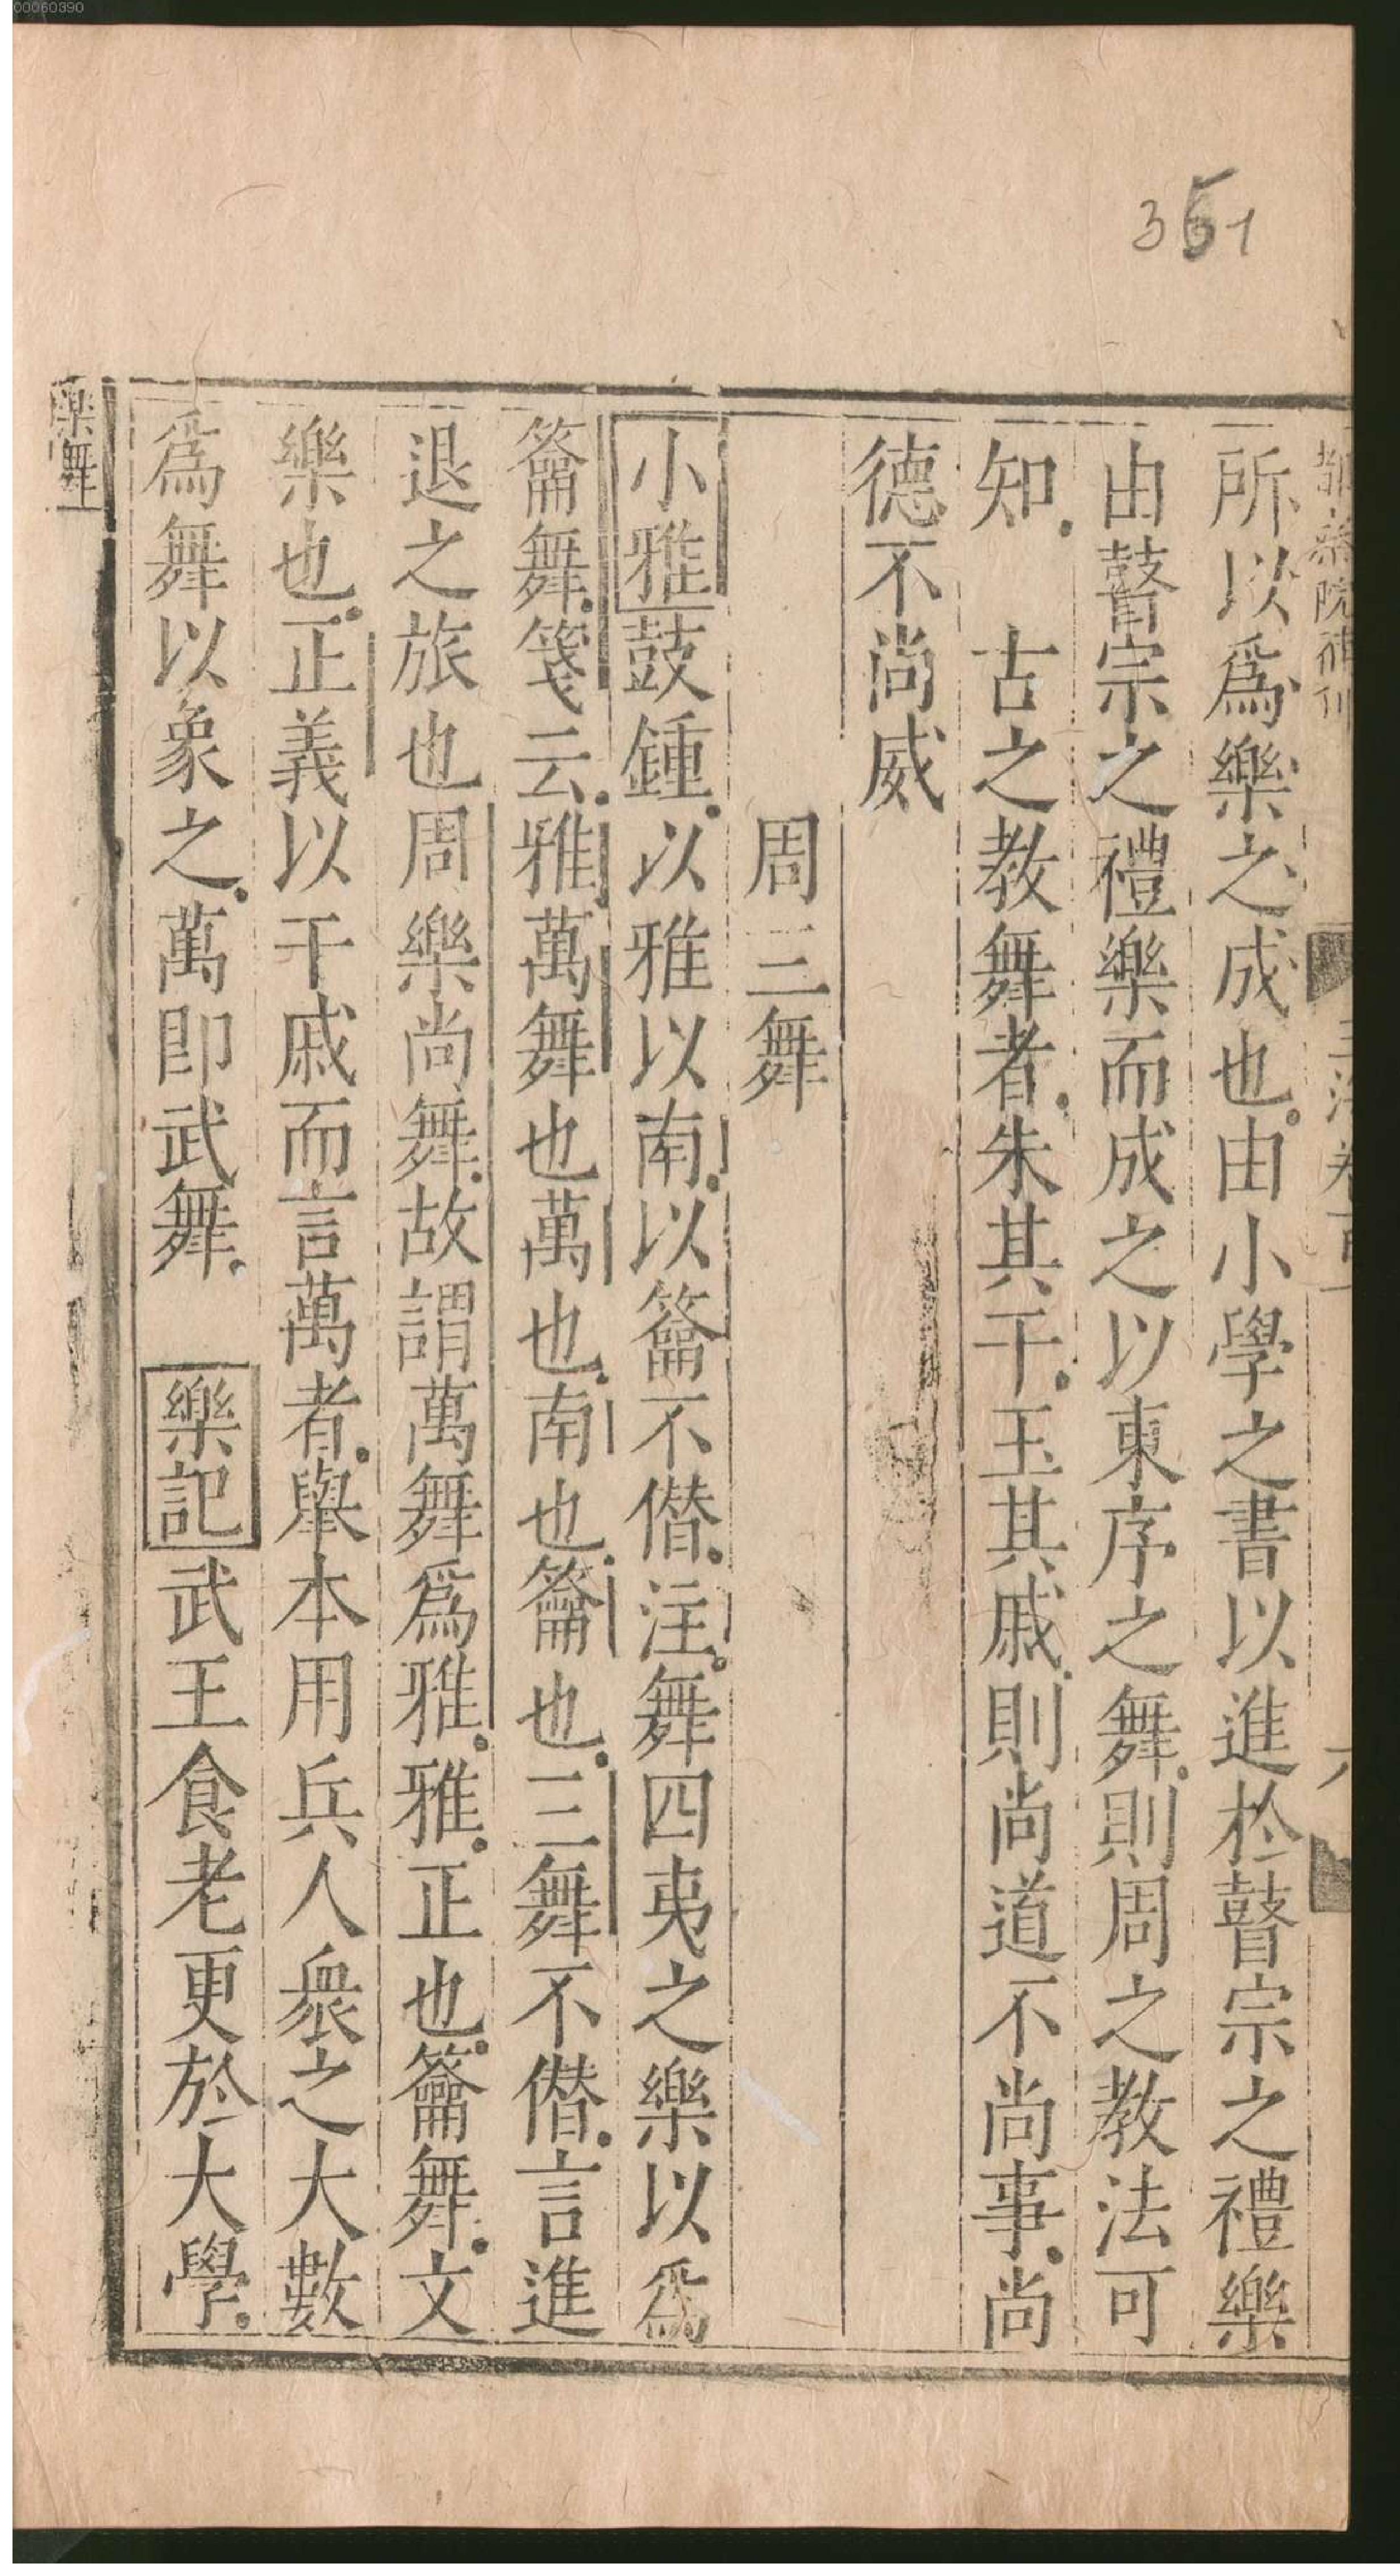 00060390
361
所以爲樂之成也由小學之書以進於瞽宗之禮樂
由瞽宗之禮樂而成之以東序之舞則周之教法可
知　古之教舞者朱其干玉其戚則尚道不尚事尚
德不尚威
周三舞
小雅鼓鍾以雅以南以籥不僭注舞四夷之樂以爲
籥舞箋云雅萬舞也萬也南也籥也三舞不僭言進
退之旅也周樂尚舞故謂萬舞爲雅雅正也籥舞文
樂也正義以干戚而言萬者舉本用兵人衆之大數
爲舞以象之萬即武舞　樂記武王食老更於大學
樂舞上